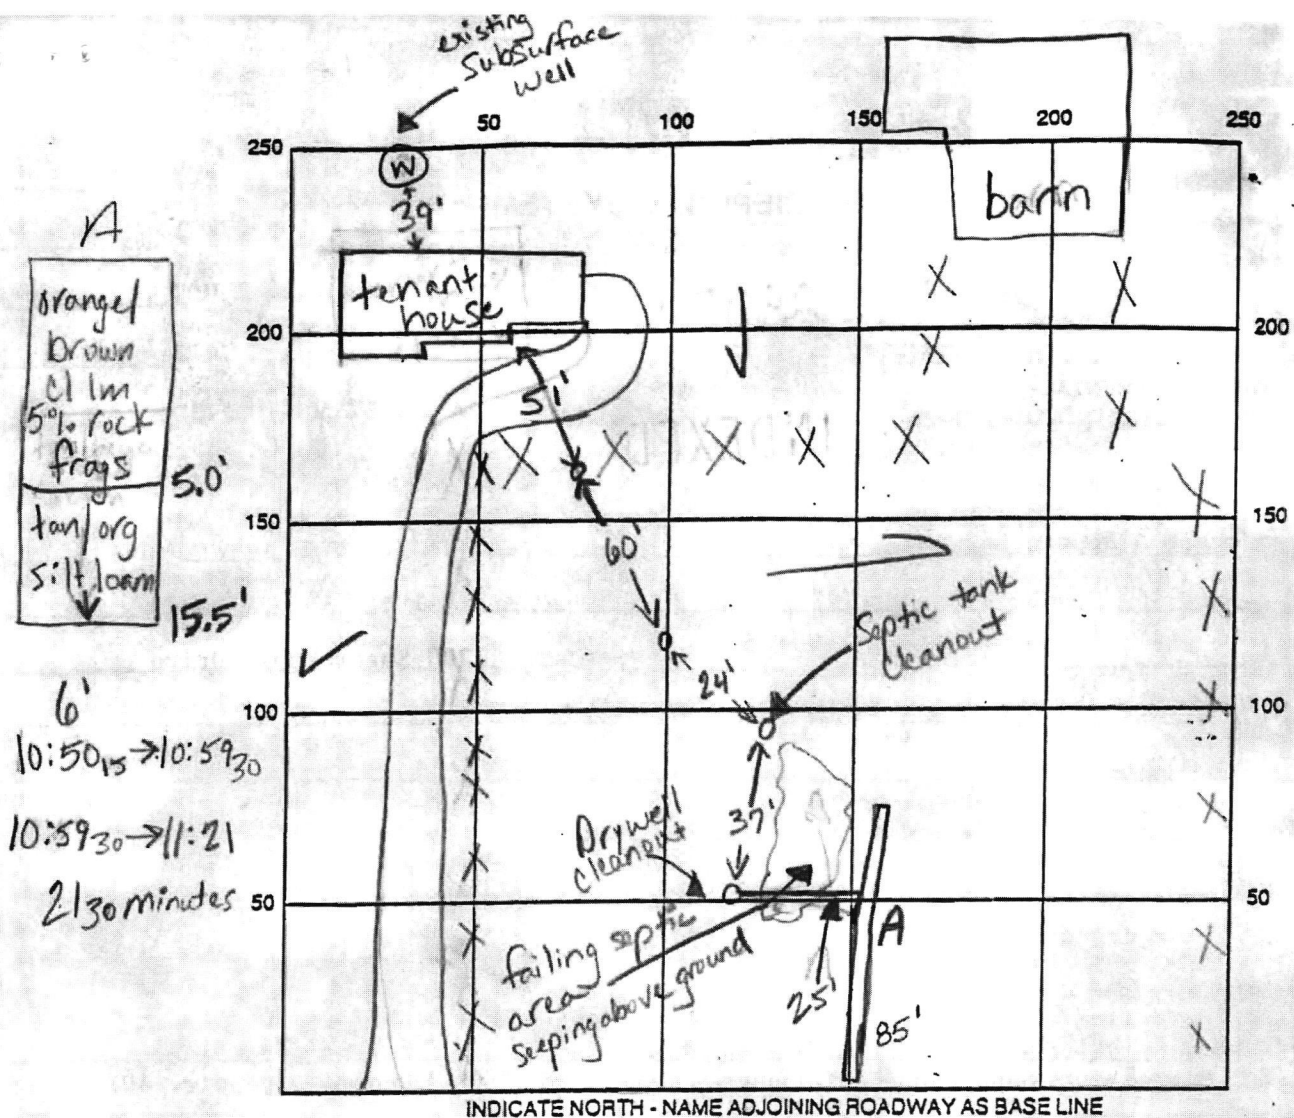 existing
subsurface
well
50
100
150
200
250
250
W
39'
barn
A
orange/
brown
cl lm
5% rock
frags
5.0'
tan/org
silt loam
15.5'
tenant
house
200
200
51'
150
150
60'
Septic tank
cleanout
24'
100
100
6'
10:50 15 → 10:59 30
10:59 30 → 11:21
21 30 minutes
37'
Drywell
cleanout
50
50
A
failing septic
area
seeping above ground
25'
85'
INDICATE NORTH - NAME ADJOINING ROADWAY AS BASE LINE